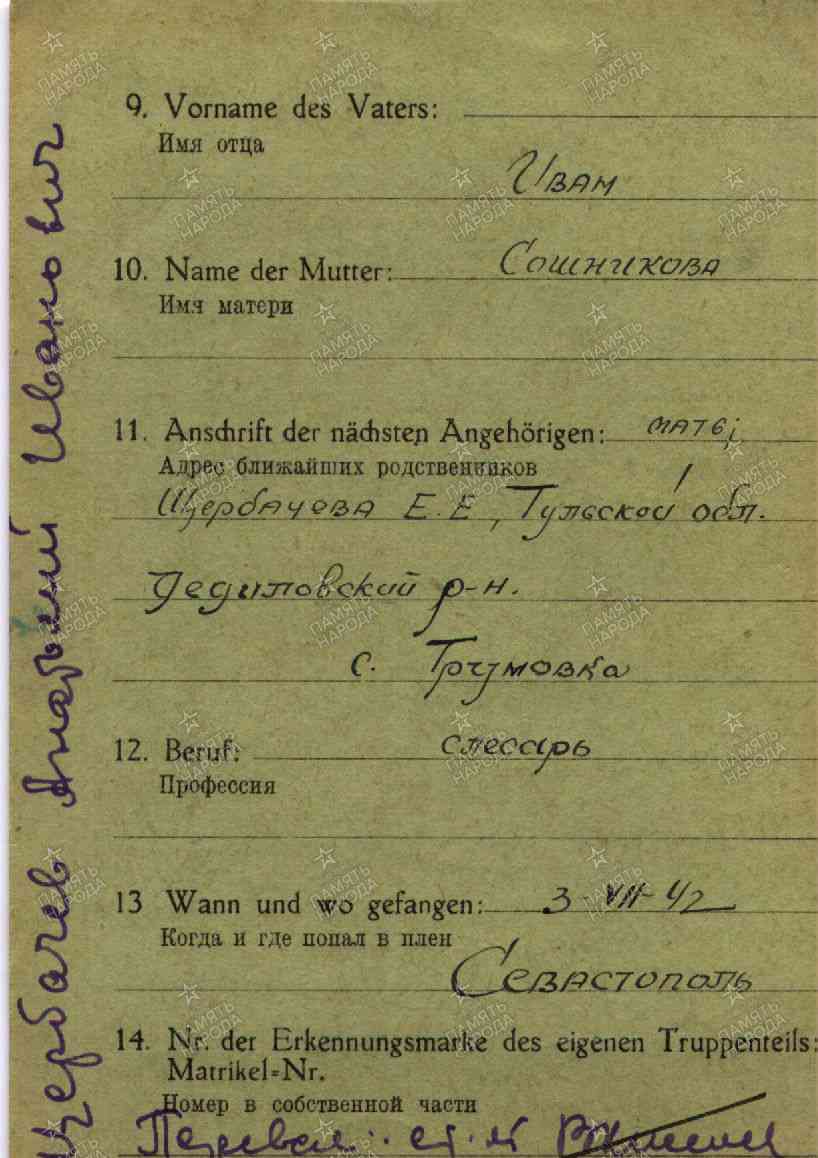 9. Vorname des Vaters:
Имя отца
Иван
10. Name der Mutter: Сошникова
Имя матери
11. Anschrift der nächsten Angehörigen:
Адрес ближайших родственников
Щербачева Е. Е, Тульской обл.
Дедиловский р-н.
с. Трумовка
12. Beruf: слесарь
Профессия
13 Wann und wo gefangen: 3-VII-42
Когда и где попал в плен
Севастополь
14. Nr. der Erkennungsmarke des eigenen Truppenteils:
Matrikel=Nr.
Номер в собственной части
Щербачев Анатолий Иванович
ПАМЯТЬ НАРОДА